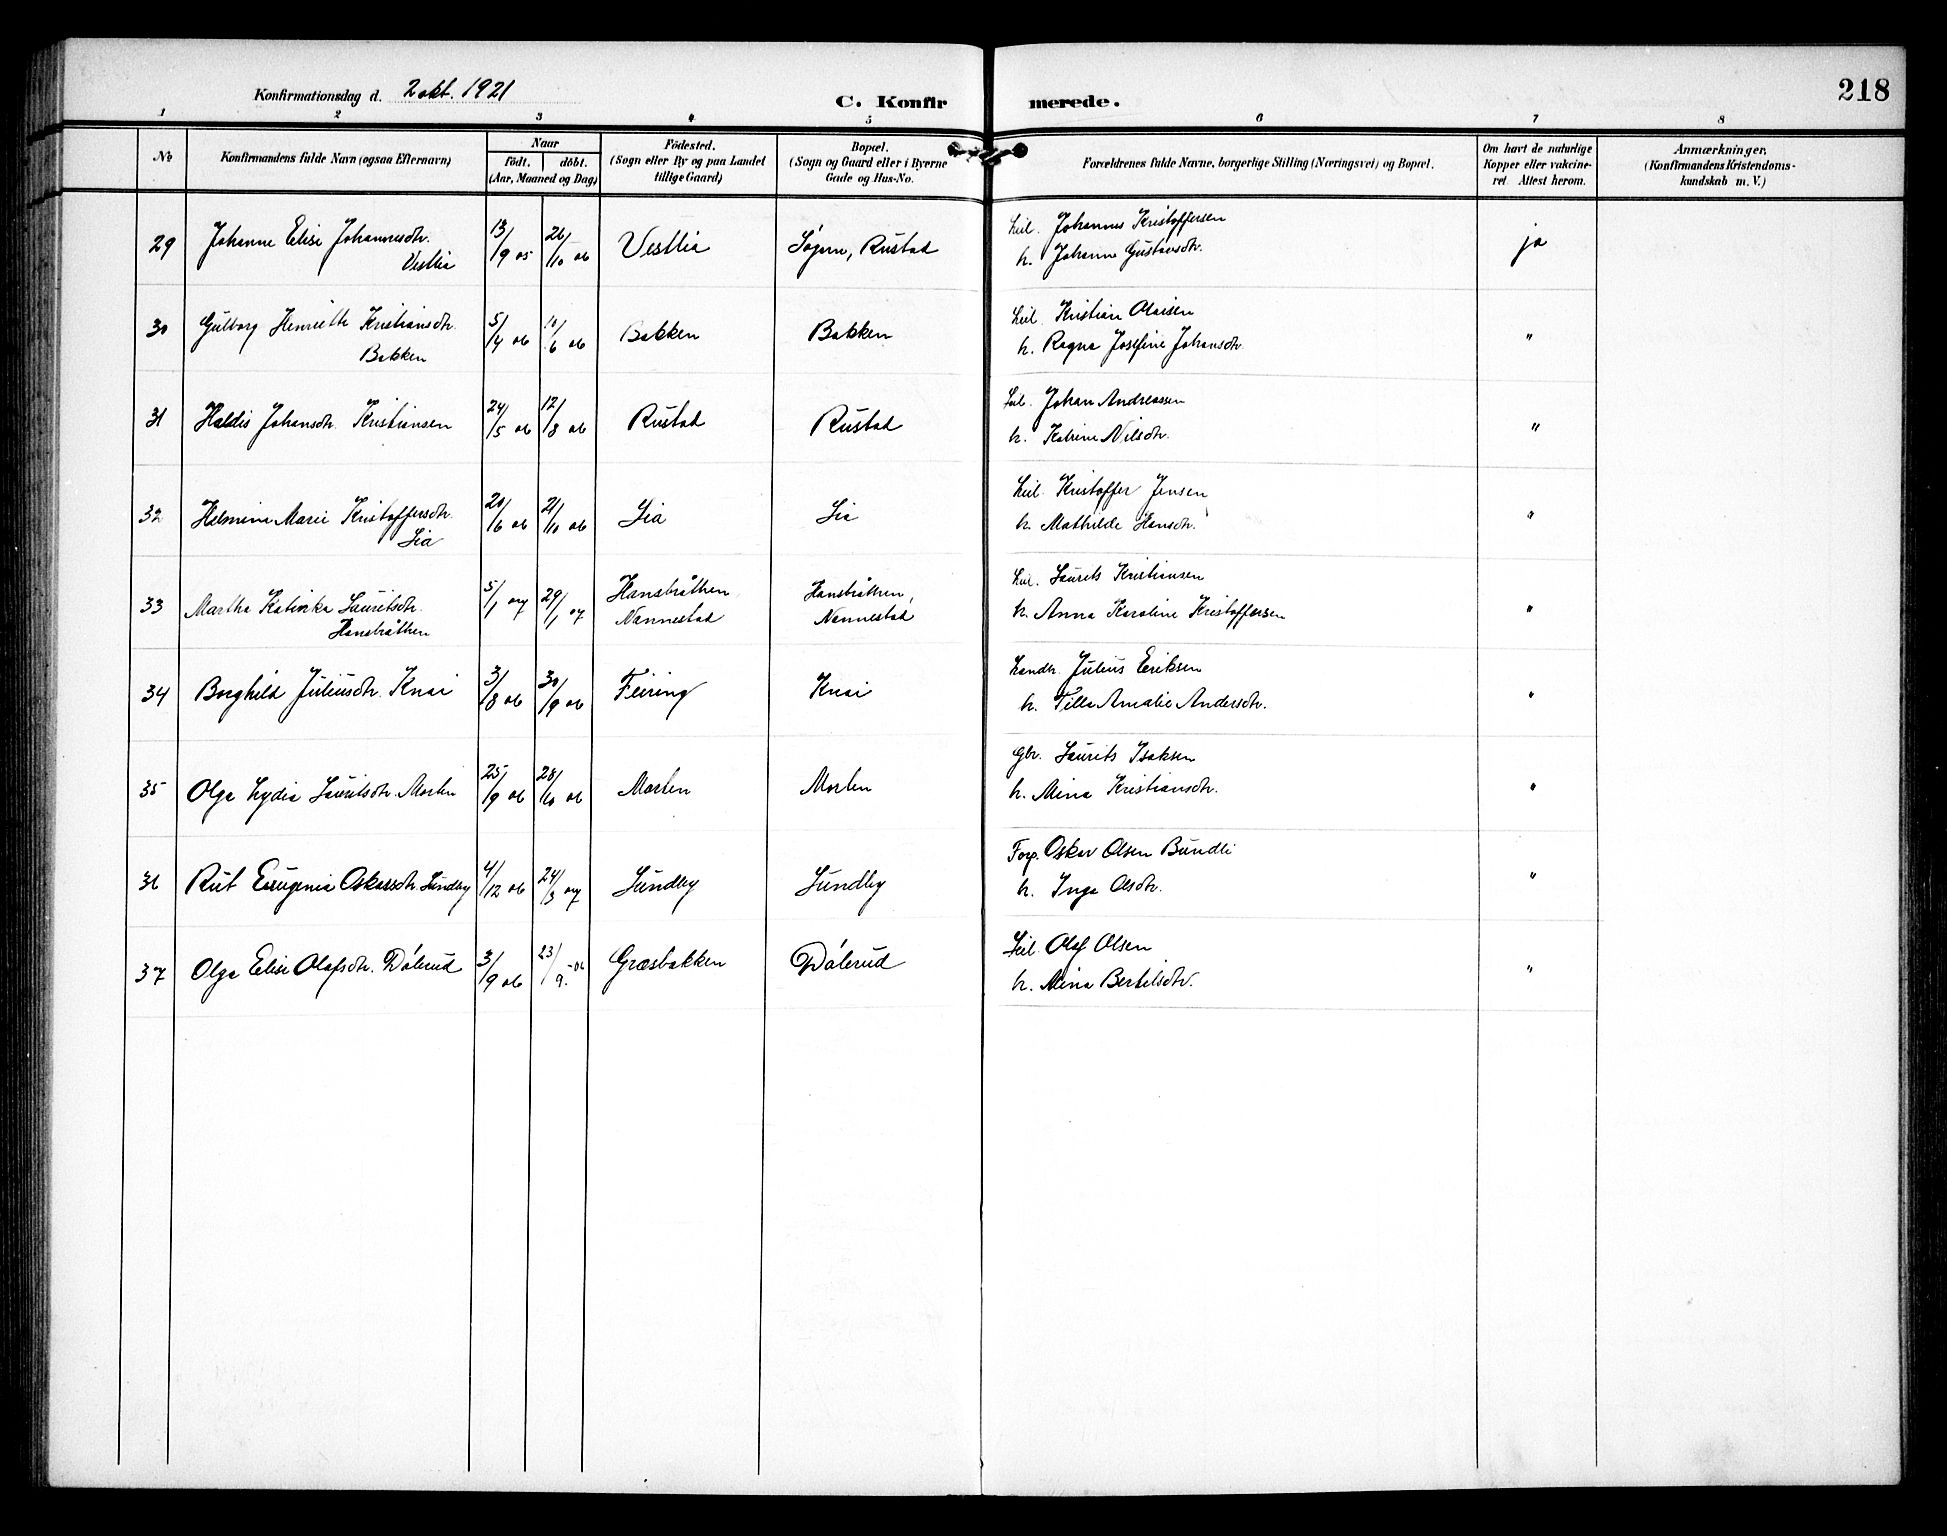 218
Konfirmationsdag d. 2 okt. 1921
C. Konfir merede.
1 2 3 4 5 6 7 8
No
Konfirmandens fulde Navn (ogsaa Efternavn)
Naar
födt. döbt.
(Aar, Maaned og Dag)
Födested.
(Sogn eller By og paa Landet
tillige Gaard)
Bopæl.
(Sogn og Gaard eller i Byerne
Gade og Hus-No.
Forældrenes fulde Navne, borgerlige Stilling (Næringsvei) og Bopæl.
Om havt de naturlige
Kopper eller vakcine-
ret. Attest herom.
Anmærkninger,
(Konfirmandens Kristendoms-
kundskab m. V.)
29 Johanne Elise Johannesdtr. 13/9 05 26/10 06 Vestlia Rustad Leil. Johannes Kristoffersen ja
Vestlia h. Johanne Gustavsdtr.
30 Gulborg Henriette Kristiansdtr. 5/4 06 10/6 06 Bakken Bakken Leil. Kristian Olaisen "
Bakken h. Ragna Josefine Johansdtr.
31 Haldis Johansdtr. Kristiansen 24/5 06 12/8 06 Rustad Rustad Leil. Johan Andreassen "
h. Katrine Nilsdtr.
32 Helmine Marie Kristoffersdtr. 20/6 06 21/10 06 Lia Lia Leil. Kristoffer Jensen "
Lia h. Mathilde Hansdtr.
33 Martha Katinka Lauritsdtr. 5/1 07 29/1 07 Hansbråthen Hansbråthen, Leil. Laurits Kristiansen "
Hansbråthen Nannestad Nannestad h. Anna Karoline Kristoffersen
34 Borghild Juliusdtr. Knai 3/8 06 30/9 06 Feiring Knai Landh. Julius Eriksen "
h. Tilla Amalie Andersdtr.
35 Olga Lydia Lauritsdtr. Morten 25/9 06 28/10 06 Morten Morten Gbr. Laurits Isaksen "
h. Mina Kristiansdtr.
36 Rut Eugenia Oskarsdtr. Sundby 4/12 06 24/3 07 Sundby Sundby Forp. Oskar Olsen Bundli "
h. Inga Olsdtr.
37 Olga Elise Olafsdtr. Dålerud 3/9 06 23/9. 06 Græsbakken Dålerud Leil. Olaf Olsen "
h. Mina Bertilsdtr.